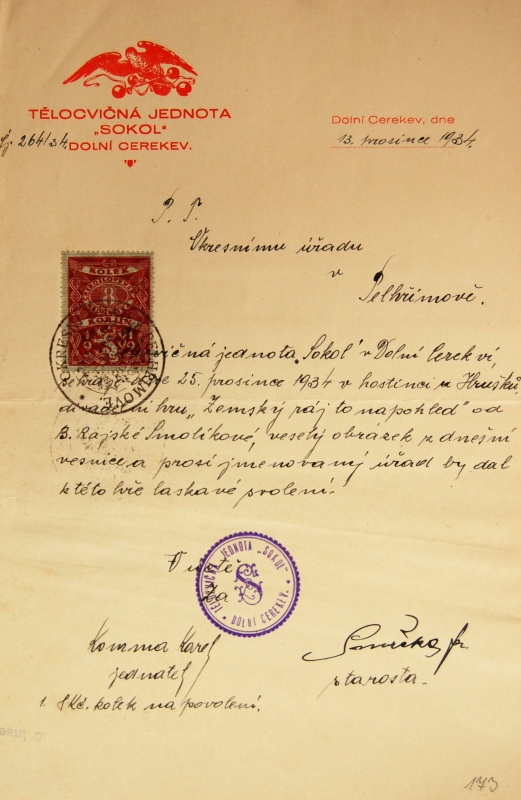 TĚLOCVIČNÁ JEDNOTA
„SOKOL“
DOLNÍ CEREKEV.
Čj. 264/34.
Dolní Cerekev, dne
13. prosince 1934.
P. T.
Okresnímu úřadu
v
Pelhřimově.
KOLEK
8
vičná jednota „Sokol“ v Dolní Cerekvi,
sehraje dne 25. prosince 1934 v hostinci u Hrušků,
divadelní hru „Zemský ráj to napohled“ od
B. Rajské Smolíkové, veselý obrázek z dnešní
vesnice a prosí jmenovaný úřad by dal
k této hře laskavé svolení.
Za
TĚLOCVIČNÁ JEDNOTA „SOKOL“
DOLNÍ CEREKEV.
S
Komma Karel
jednatel
starosta.
1. 8 Kč. kolek na povolení.
173